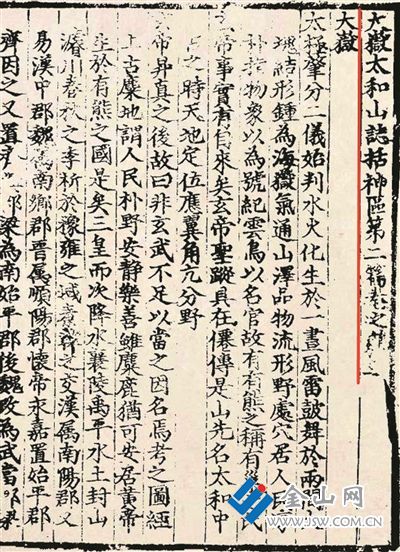 大嶽太和山誌括神區第二篇卷之
大嶽
太極肇分二儀始判水火化生於一晝風雷鼓舞於兩間
瑰結形鍾為海嶽氣通山澤品物流形野處穴居人
物象以為號紀雲鳥以名官故有有熊之稱有氏
帝事實有自來矣玄帝聖蹤具在僊傳是山先名太和中
之時天地定位應翼角亢分野
帝昇真之後故曰非玄武不足以當之因名焉考之圖經
上古麋地謂人民朴野安靜樂善雖麋鹿猶可安居黃帝
並於有熊之國是矣二皇而次降水襄陵禹平水土封山
濬川春秋之季析於豫雍之域之交漢属南陽郡又
易漢中郡魏属南鄉郡晉属順陽郡懷帝永嘉置始平郡
齊因之又置梁為南始平郡後魏改為武當
金山网
WWW.JSW.COM.CN